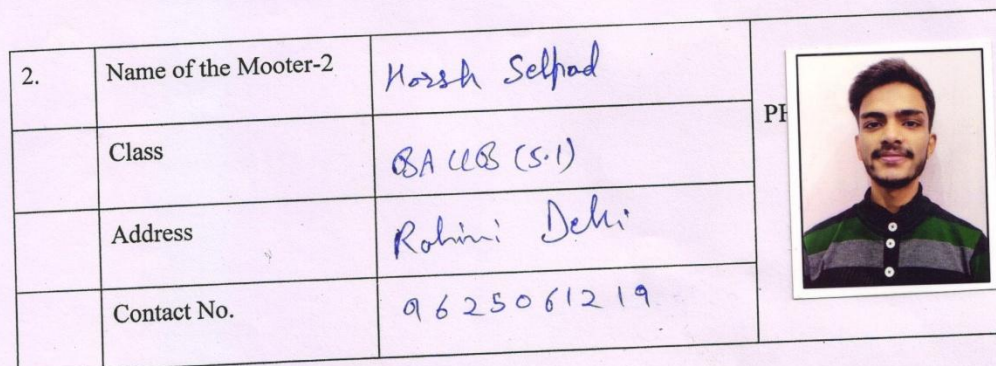 2. Name of the Mooter-2 Harsh Selpad
Class BA LLB (5.1)
PH
Address Rohini Delhi
Contact No. 9625061219